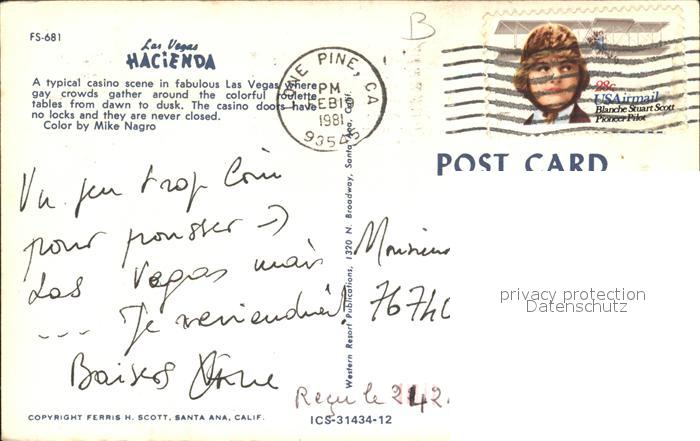 FS-681
Las Vegas
HACIENDA
A typical casino scene in fabulous Las Vegas where
gay crowds gather around the colorful roulette
tables from dawn to dusk. The casino doors have
no locks and they are never closed.
Color by Mike Nagro
B
LONE PINE, CA
PM
FEB 1
1981
93545
28c
USAirmail
Blanche Stuart Scott
Pioneer Pilot
POST CARD
Un peu trop loin
pour pousser →
Las Vegas mais
... Je reviendrai!
Baisers
Monsieur
7674
privacy protection
Datenschutz
Reçu le 24 2.
Western Resort Publications, 1320 N. Broadway, Santa Ana, Calif.
COPYRIGHT FERRIS H. SCOTT, SANTA ANA, CALIF.
ICS-31434-12